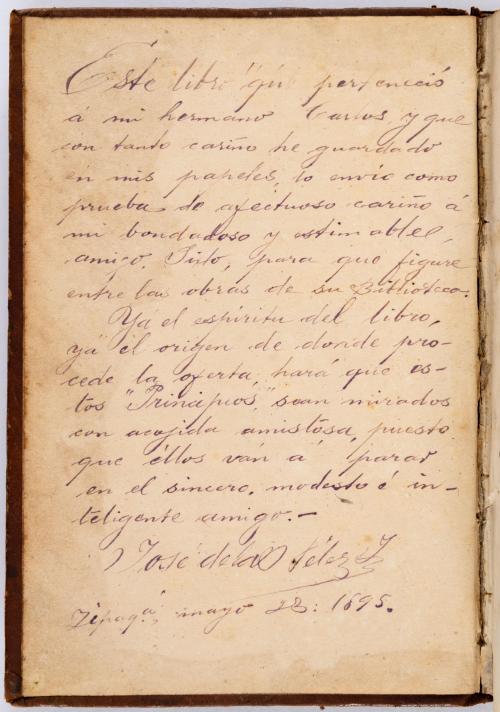 Este libro que perteneció
á mi hermano Carlos, y que
con tanto cariño he guardado
en mis papeles, lo envío como
prueba de afectuoso cariño á
mi bondadoso y estimable,
amigo, Sixto, para que figure
entre las obras de su Biblioteca.
Yá el espíritu del libro,
yá el origen de donde pro-
cede la oferta, hará que es-
tos "Principios," sean mirados
con acojida amistosa, puesto
que éllos ván á parar
en el sincero, modesto é in-
teligente amigo.—
José de la Vélez
Zipaq.á, mayo 28: 1895.